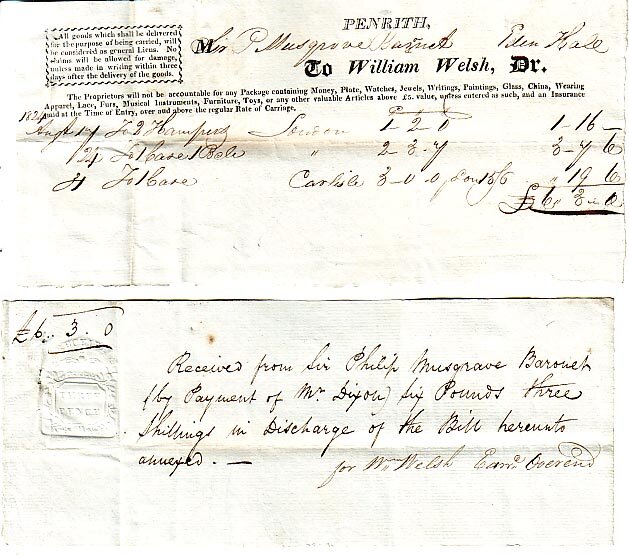 PENRITH,
All goods which shall be delivered
for the purpose of being carried, will
be considered as general Liens. No
claims will be allowed for damage,
unless made in writing within three
days after the delivery of the goods.
Sir P Musgrove Baronet Eden Hall
To William Welsh, Dr.
The Proprietors will not be accountable for any Package containing Money, Plate, Watches, Jewels, Writings, Paintings, Glass, China, Wearing
Apparel, Lace, Furs, Musical Instruments, Furniture, Toys, or any other valuable Articles above £5. value, unless entered as such, and an Insurance
paid at the Time of Entry, over and above the regular Rate of Carriage.
1824
Augt To 2 Hampers London 1 2 0 1-16-
24 To 1 Case 1 Bale " 2-3-7 3-7 6
To 1 Case Carlisle 3-0-0 " 19 6
£6 3 0
£6. 3. 0
THREE
PENCE
Received from Sir Philip Musgrave Baronet
(by Payment of Mr. Dixon) Six Pounds three
Shillings in Discharge of the Bill hereunto
annexed. —
for Wm Welsh Edwd Overend